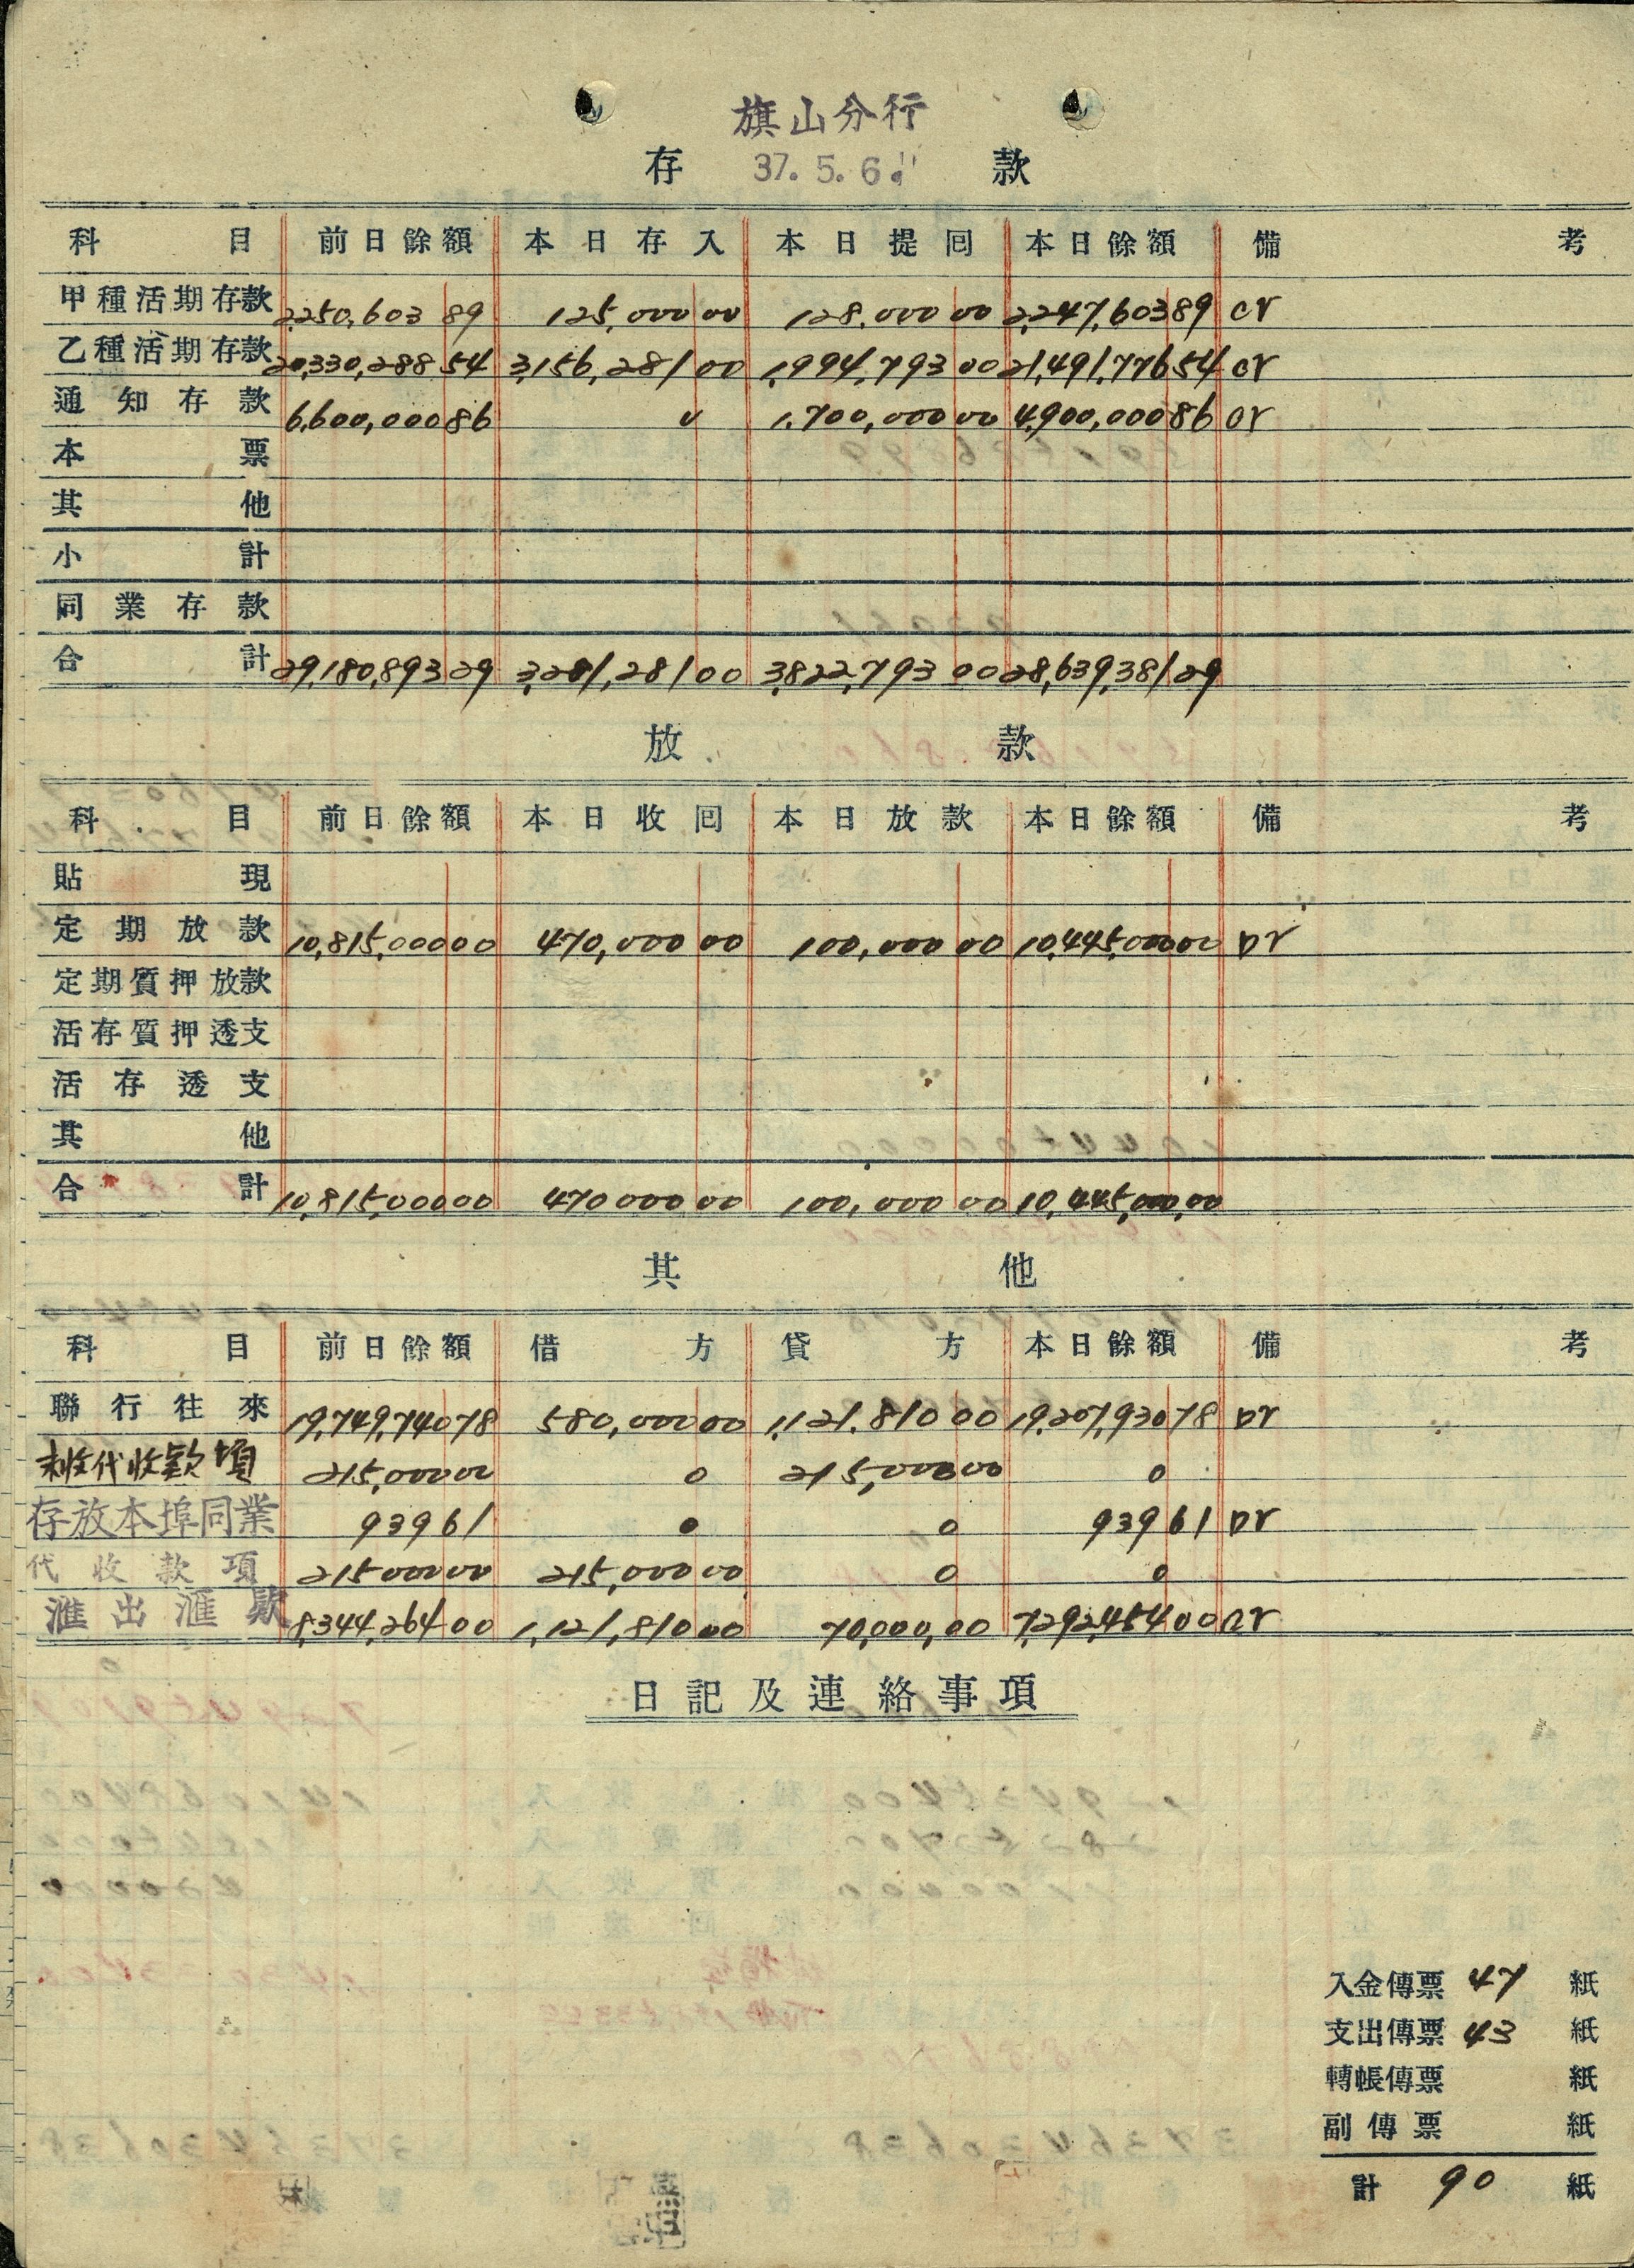 旗山分行
存 37.5.6. 款
科目 前日餘額 本日存入 本日提囘 本日餘額 備考
甲種活期存款 2,250,603 89 125,000 00 128,000 00 2,247,603 89 cr
乙種活期存款 20,330,288 54 3,156,281 00 1,994,793 00 21,491,776 54 cr
通知存款 6,600,000 86 0 1,700,000 00 4,900,000 86 cr
本票
其他
小計
同業存款
合計 29,180,893 29 3,281,281 00 3,822,793 00 28,639,381 29
放款
科目 前日餘額 本日收囘 本日放款 本日餘額 備考
貼現
定期放款 10,815,000 00 470,000 00 100,000 00 10,445,000 00 Dr
定期質押放款
活存質押透支
活存透支
其他
合計 10,815,000 00 470000 00 100,000 00 10,445,000,00
其他
科目 前日餘額 借方 貸方 本日餘額 備考
聯行往來 19,749,740 78 580,000 00 1,121,810 00 19,207,930 78 Dr
未收代收款項 215,000 00 0 215,000 00 0
存放本埠同業 939 61 0 0 939 61 Dr
代收款項 215000 00 215,000 00 0 0
滙出滙款 8,344,264 00 1,121,810 00 70,000,00 7,292,454 00 cr
日記及連絡事項
入金傳票 47 紙
支出傳票 43 紙
轉帳傳票 紙
副傳票 紙
計 90 紙